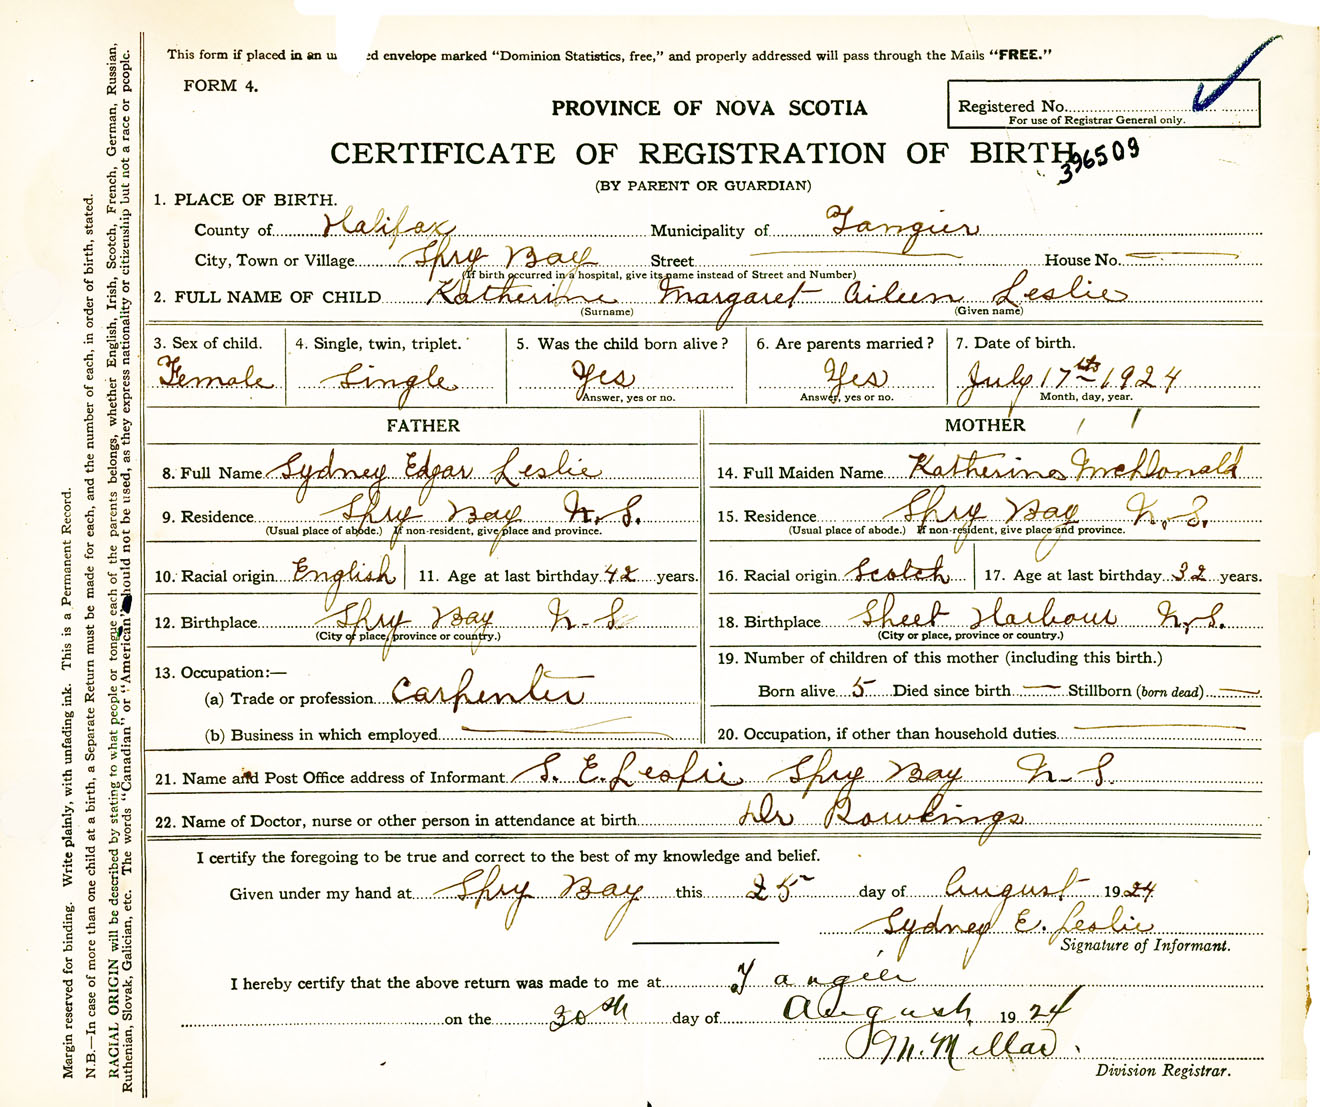 This form if placed in an un ed envelope marked "Dominion Statistics, free," and properly addressed will pass through the Mails "FREE."
FORM 4.
PROVINCE OF NOVA SCOTIA
Registered No.
For use of Registrar General only.
CERTIFICATE OF REGISTRATION OF BIRTH
396509
(BY PARENT OR GUARDIAN)
1. PLACE OF BIRTH.
County of Halifax Municipality of Tangier
City, Town or Village Spry Bay Street — House No. —
(If birth occurred in a hospital, give its name instead of Street and Number)
2. FULL NAME OF CHILD Katherine Margaret Aileen Leslie
(Surname) (Given name)
3. Sex of child. 4. Single, twin, triplet. 5. Was the child born alive? 6. Are parents married? 7. Date of birth.
Female Single Yes Yes July 17th 1924
Answer, yes or no. Answer, yes or no. Month, day, year.
FATHER MOTHER
8. Full Name Sydney Edgar Leslie 14. Full Maiden Name Katherine McDonald
9. Residence Spry Bay N.S. 15. Residence Spry Bay N.S.
(Usual place of abode.) If non-resident, give place and province. (Usual place of abode.) If non-resident, give place and province.
10. Racial origin English 11. Age at last birthday 42 years. 16. Racial origin Scotch 17. Age at last birthday 32 years.
12. Birthplace Spry Bay N.S. 18. Birthplace Sheet Harbour N.S.
(City or place, province or country.) (City or place, province or country.)
13. Occupation:— 19. Number of children of this mother (including this birth.)
(a) Trade or profession Carpenter Born alive 5 Died since birth — Stillborn (born dead) —
(b) Business in which employed — 20. Occupation, if other than household duties —
21. Name and Post Office address of Informant S. E. Leslie Spry Bay N.S.
22. Name of Doctor, nurse or other person in attendance at birth Dr Rowlings
I certify the foregoing to be true and correct to the best of my knowledge and belief.
Given under my hand at Spry Bay this 25 day of August 1924
Sydney E. Leslie
Signature of Informant.
I hereby certify that the above return was made to me at Tangier
on the 30th day of August 1924
Millar
Division Registrar.
Margin reserved for binding. Write plainly, with unfading ink. This is a Permanent Record.
N.B.—In case of more than one child at a birth, a Separate Return must be made for each, and the number of each, in order of birth, stated.
RACIAL ORIGIN will be described by stating to what people or tongue each of the parents belongs, whether English, Irish, Scotch, French, German, Russian,
Ruthenian, Slovak, Galician, etc. The words "Canadian" or "American" should not be used, as they express nationality or citizenship but not a race or people.